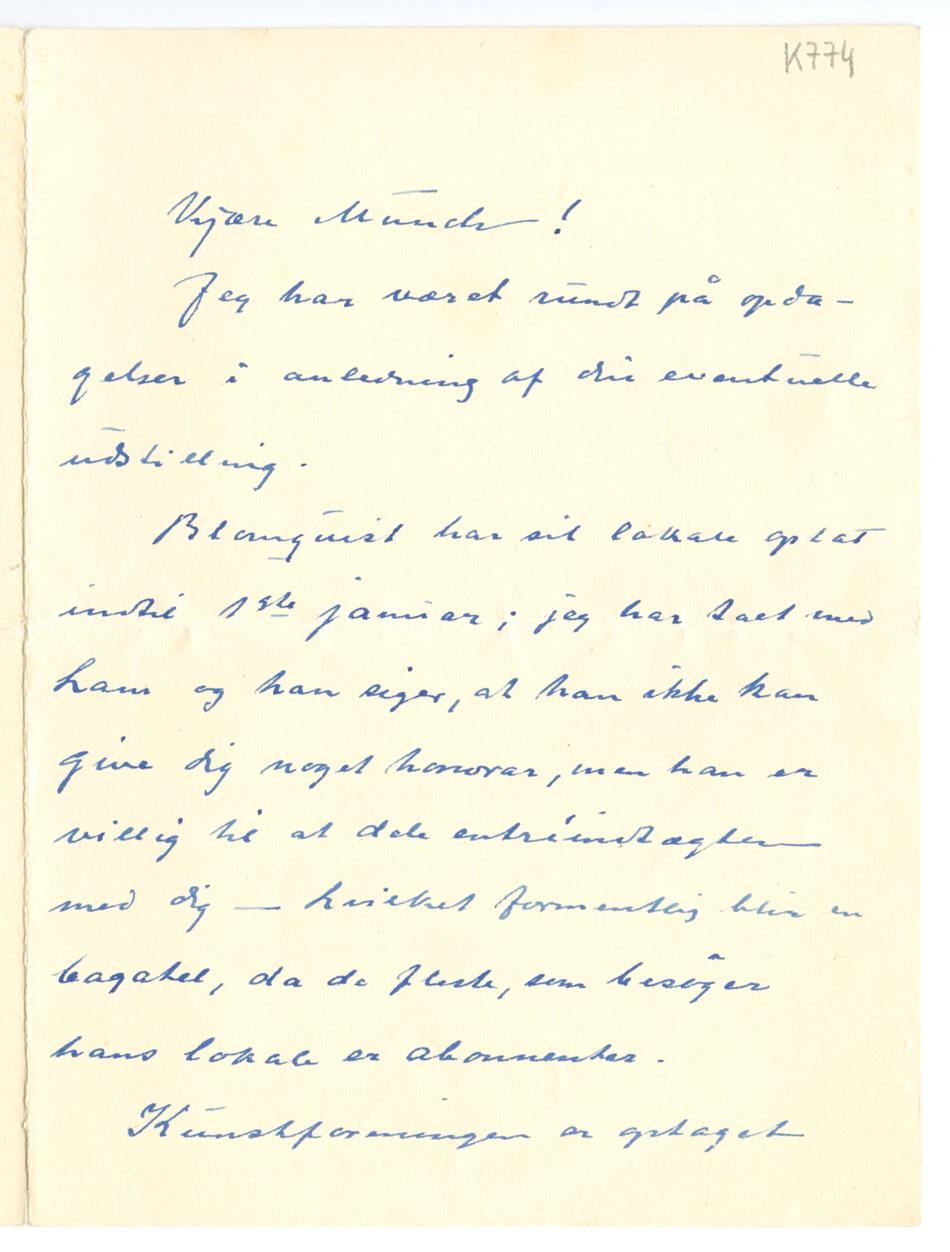 K774
Kjære Munch!
Jeg har været rundt på opda-
gelser i anledning af din eventuelle
udstilling.
Blomquist har sit lokale optat
indtil 1ste januar; jeg har talt med
ham og han siger, at han ikke kan
give dig noget honorar, men han er
villig til at dele entréindtægten
med dig — hvilket formentlig blir en
bagatel, da de fleste, som besøger
hans lokale er abonnenter.
Kunstforeningen er optaget